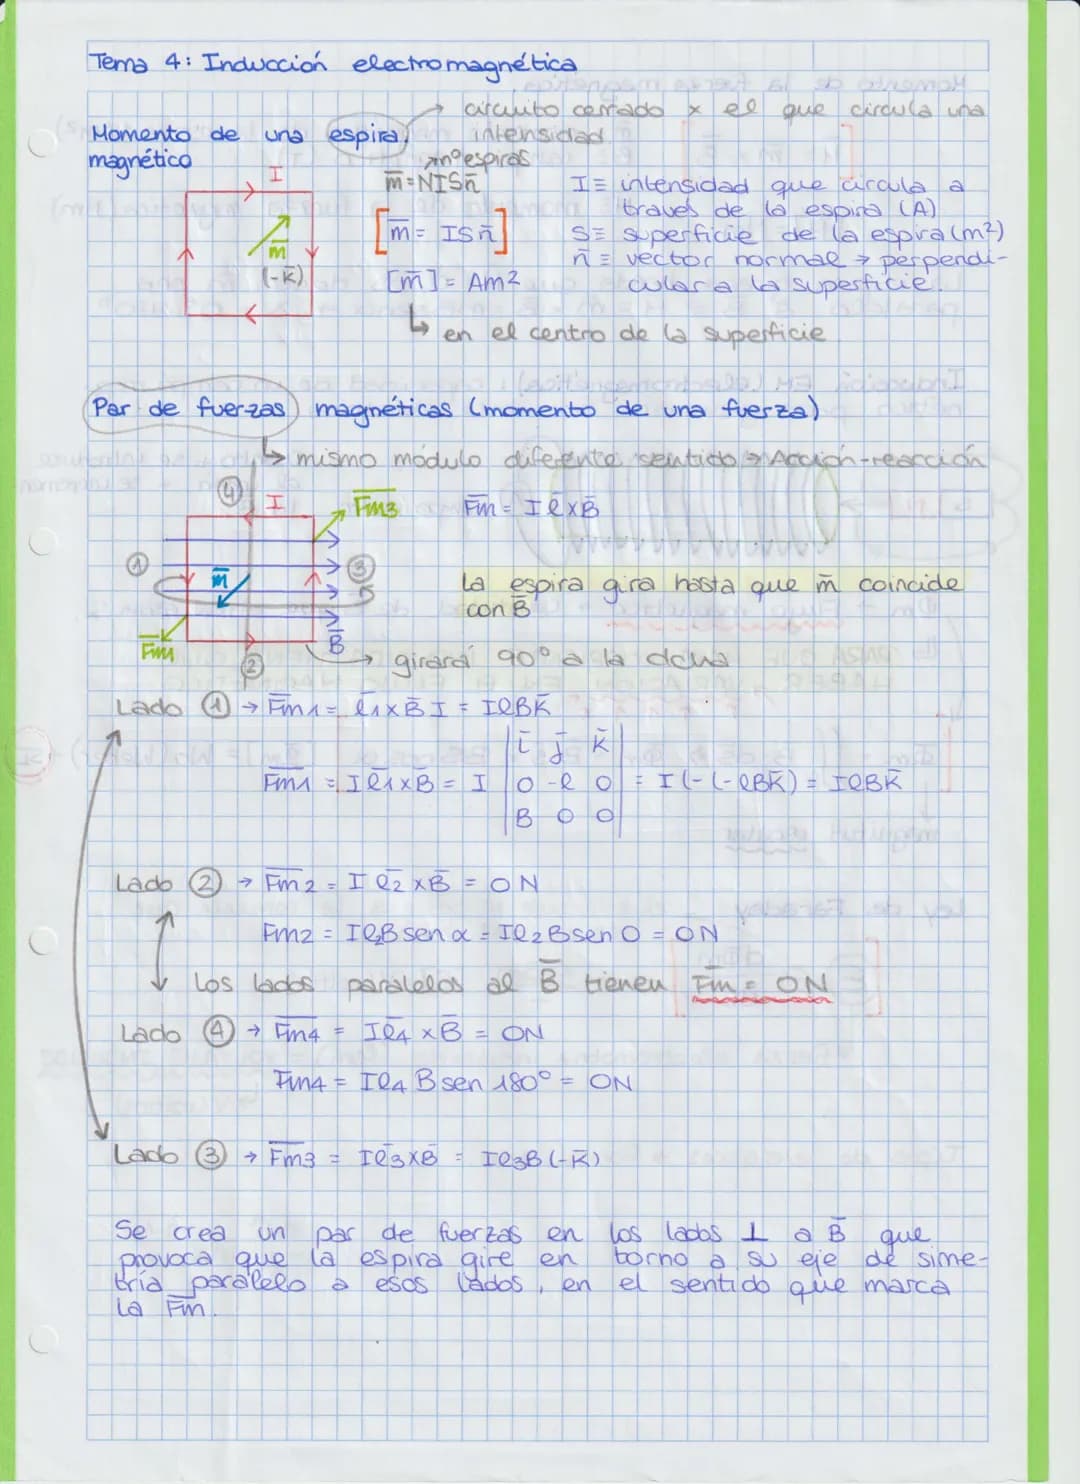 Tema 4: Inducción electromagnética
→ circuito cerrado x el que circula una
intensidad.
Momento de una espira,
magnético
I
m̅
(-k̅)
→ nº espiras
m̅ = NISn̅
[m̅ = ISn̅]
[m̅] = Am²
↳ en el centro de la superficie
I ≡ intensidad que circula a
través de la espira (A)
S ≡ superficie de la espira (m²)
n̅ ≡ vector normal → perpendi-
cular a la superficie.
Par de fuerzas magnéticas (momento de una fuerza)
↳ mismo módulo diferente sentido → Acción-reacción
④
I
F̅m3
F̅m = I l̅ x B̅
①
m̅
③
La espira gira hasta que m̅ coincide
con B̅
F̅m1
②
B̅
→ girará 90º a la dcha
Lado ① → F̅m1 = l̅1 x B̅ I = IlBk̅
F̅m1 = I l̅1 x B̅ = I | i̅ j̅ k̅ | = I (-(-lBk̅)) = IlBk̅
0 -l 0
B 0 0
Lado ② → F̅m2 = I l̅2 x B̅ = 0N
Fm2 = Il2B sen α = Il2B sen 0 = 0N
Los lados paralelos al B̅ tienen F̅m = 0N
Lado ④ → F̅m4 = Il̅4 x B̅ = 0N
Fm4 = Il4 B sen 180º = 0N
Lado ③ → F̅m3 = Il̅3 x B̅ = Il3B (-k̅)
Se crea un par de fuerzas en los lados ⊥ a B̅ que
provoca que la espira gire en torno a su eje de sime-
tría paralelo a esos lados, en el sentido que marca
la F̅m.